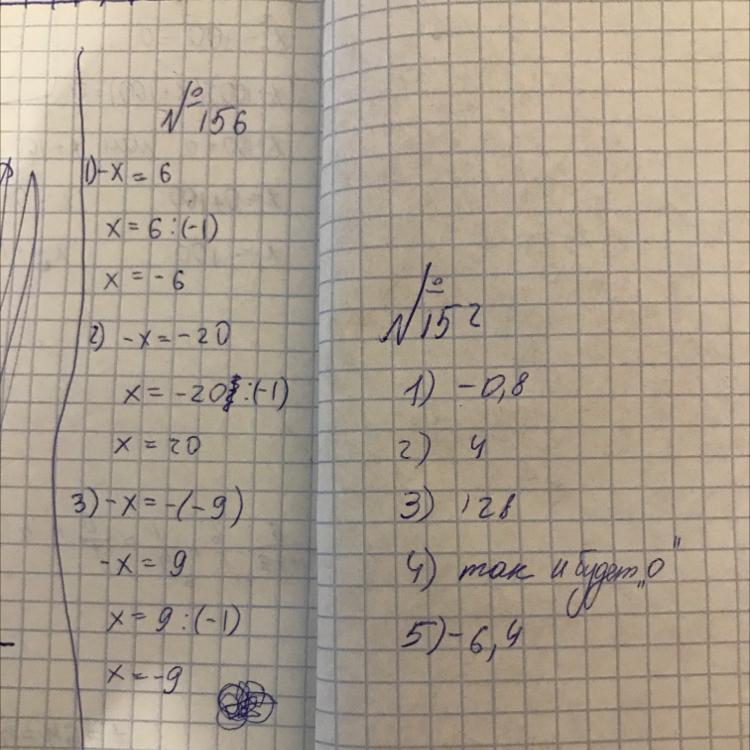 №156
1) -x = 6
x = 6 : (-1)
x = -6
2) -x = -20
x = -20 : (-1)
x = 20
3) -x = -(-9)
-x = 9
x = 9 : (-1)
x = -9
№152
1) -0,8
2) 4
3) 128
4) так и будет „0"
5) -6,4